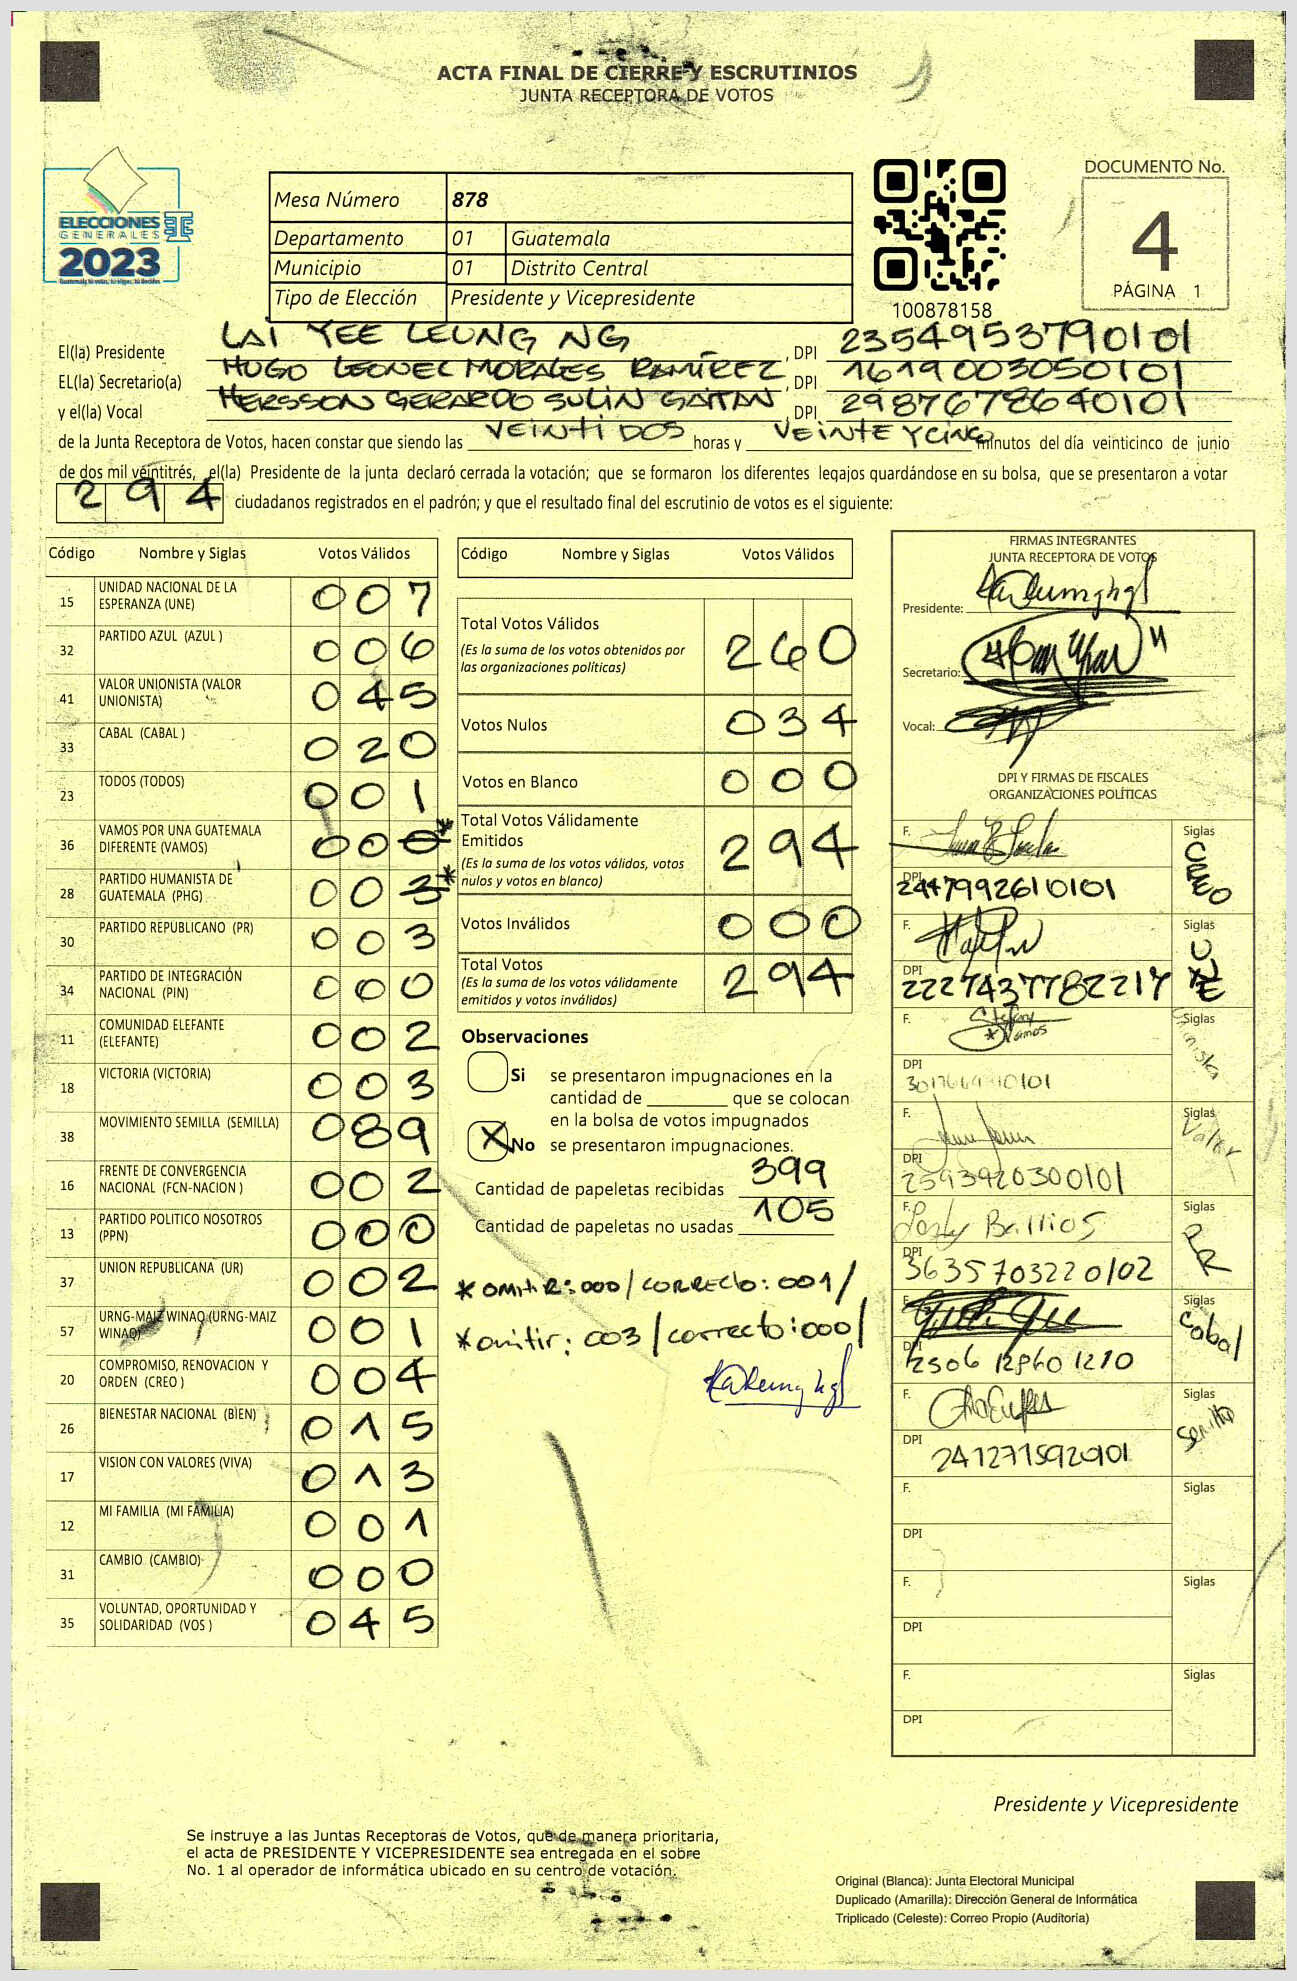 ACTA FINAL DE CIERRE Y ESCRUTINIOS
JUNTA RECEPTORA DE VOTOS
ELECCIONES
GENERALES
2023
Mesa Número 878
Departamento 01 Guatemala
Municipio 01 Distrito Central
Tipo de Elección Presidente y Vicepresidente
100878158
DOCUMENTO No.
4
PÁGINA 1
El(la) Presidente LAI YEE LEUNG NG, DPI 2354953790101
EL(la) Secretario(a) HUGO LEONEL MORALES RAMÍREZ, DPI 1619003050101
y el(la) Vocal HERSSON GERARDO SULIN GAITAN, DPI 2987678640101
de la Junta Receptora de Votos, hacen constar que siendo las VEINTIDOS horas y VEINTE Y CINCO minutos del día veinticinco de junio
de dos mil veintitrés, el(la) Presidente de la junta declaró cerrada la votación; que se formaron los diferentes legajos quardándose en su bolsa, que se presentaron a votar
294 ciudadanos registrados en el padrón; y que el resultado final del escrutinio de votos es el siguiente:
Código Nombre y Siglas Votos Válidos
15 UNIDAD NACIONAL DE LA ESPERANZA (UNE) 007
32 PARTIDO AZUL (AZUL ) 006
41 VALOR UNIONISTA (VALOR UNIONISTA) 045
33 CABAL (CABAL ) 020
23 TODOS (TODOS) 001
36 VAMOS POR UNA GUATEMALA DIFERENTE (VAMOS) 000 *
28 PARTIDO HUMANISTA DE GUATEMALA (PHG) 003 *
30 PARTIDO REPUBLICANO (PR) 003
34 PARTIDO DE INTEGRACIÓN NACIONAL (PIN) 000
11 COMUNIDAD ELEFANTE (ELEFANTE) 002
18 VICTORIA (VICTORIA) 003
38 MOVIMIENTO SEMILLA (SEMILLA) 089
16 FRENTE DE CONVERGENCIA NACIONAL (FCN-NACION ) 002
13 PARTIDO POLITICO NOSOTROS (PPN) 000
37 UNION REPUBLICANA (UR) 002
57 URNG-MAIZ WINAQ (URNG-MAIZ WINAQ) 001
20 COMPROMISO, RENOVACION Y ORDEN (CREO ) 004
26 BIENESTAR NACIONAL (BIEN) 015
17 VISION CON VALORES (VIVA) 013
12 MI FAMILIA (MI FAMILIA) 001
31 CAMBIO (CAMBIO) 000
35 VOLUNTAD, OPORTUNIDAD Y SOLIDARIDAD (VOS ) 045
Código Nombre y Siglas Votos Válidos
Total Votos Válidos 260
(Es la suma de los votos obtenidos por
las organizaciones políticas)
Votos Nulos 034
Votos en Blanco 000
Total Votos Válidamente
Emitidos 294
(Es la suma de los votos válidos, votos
nulos y votos en blanco)
Votos Inválidos 000
Total Votos 294
(Es la suma de los votos válidamente
emitidos y votos inválidos)
Observaciones
Si se presentaron impugnaciones en la
cantidad de ________ que se colocan
en la bolsa de votos impugnados
X No se presentaron impugnaciones.
Cantidad de papeletas recibidas 399
Cantidad de papeletas no usadas 105
* OMITIR: 000 / CORRECTO: 001 /
* omitir: 003 / correcto: 000 /
FIRMAS INTEGRANTES
JUNTA RECEPTORA DE VOTOS
Presidente:
Secretario:
Vocal:
DPI Y FIRMAS DE FISCALES
ORGANIZACIONES POLÍTICAS
F. Siglas CREO
DPI 2447992610101
F. Siglas UNE
DPI 2227437782217
F. Siglas
DPI
F. Siglas Valor
DPI 2593920300101
F. Barrios Siglas PR
DPI 3635703220102
F. Siglas Cabal
DPI 2506 12860 1210
F. Siglas Semilla
DPI
F. Siglas
DPI
F. Siglas
DPI
F. Siglas
DPI
Presidente y Vicepresidente
Se instruye a las Juntas Receptoras de Votos, que de manera prioritaria,
el acta de PRESIDENTE Y VICEPRESIDENTE sea entregada en el sobre
No. 1 al operador de informática ubicado en su centro de votación.
Original (Blanca): Junta Electoral Municipal
Duplicado (Amarilla): Dirección General de Informática
Triplicado (Celeste): Correo Propio (Auditoría)